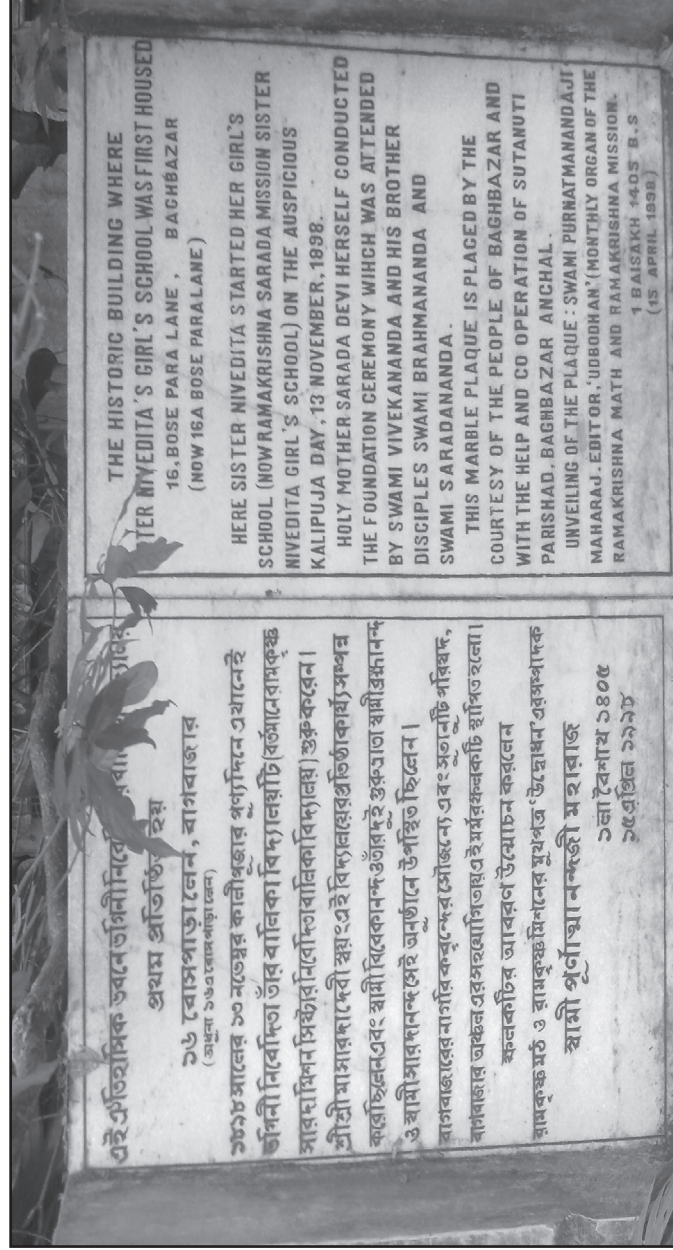 এই ঐতিহাসিক ভবনে ভগিনী
প্রথম প্রতিষ্ঠিত হয়
১৬ বোসপাড়া লেন, বাগবাজার
(অধুনা ১৬এ বোসপাড়া লেন)
১৮৯৮ সালের ১৩ নভেম্বর কালীপূজার পুণ্যদিনে এখানেই
ভগিনী নিবেদিতা তাঁর বালিকা বিদ্যালয়টি (বর্তমানে রামকৃষ্ণ
সারদা মিশন সিস্টার নিবেদিতা বালিকা বিদ্যালয়) শুরু করেন।
শ্রীশ্রীমা সারদা দেবী স্বয়ং এই বিদ্যালয়ের প্রতিষ্ঠাকার্য্য সম্পন্ন
করেছিলেন এবং স্বামী বিবেকানন্দ ও তাঁর দুই গুরুভ্রাতা স্বামী ব্রহ্মানন্দ
ও স্বামী সারদানন্দ সেই অনুষ্ঠানে উপস্থিত ছিলেন।
বাগবাজারের নাগরিকবৃন্দের সৌজন্যে এবং সুতানুটি পরিষদ,
বাগবাজার অঞ্চল এর সহযোগিতায় এই মর্মর ফলকটি স্থাপিত হলো।
ফলকটির আবরণ উন্মোচন করলেন
রামকৃষ্ণ মঠ ও রামকৃষ্ণ মিশনের মুখপত্র 'উদ্বোধন' এর সম্পাদক
স্বামী পূর্ণাত্মানন্দজী মহারাজ
১লা বৈশাখ ১৪০৫
১৫ এপ্রিল ১৯৯৮
THE HISTORIC BUILDING WHERE
TER NIVEDITA'S GIRL'S SCHOOL WAS FIRST HOUSED
16, BOSE PARA LANE, BAGHBAZAR
(NOW 16A BOSE PARA LANE)
HERE SISTER NIVEDITA STARTED HER GIRL'S
SCHOOL (NOW RAMAKRISHNA SARADA MISSION SISTER
NIVEDITA GIRL'S SCHOOL) ON THE AUSPICIOUS
KALIPUJA DAY, 13 NOVEMBER, 1898.
HOLY MOTHER SARADA DEVI HERSELF CONDUCTED
THE FOUNDATION CEREMONY WIHCH WAS ATTENDED
BY SWAMI VIVEKANANDA AND HIS BROTHER
DISCIPLES SWAMI BRAHMANANDA AND
SWAMI SARADANANDA.
THIS MARBLE PLAQUE IS PLACED BY THE
COURTESY OF THE PEOPLE OF BAGHBAZAR AND
WITH THE HELP AND CO OPERATION OF SUTANUTI
PARISHAD, BAGHBAZAR ANCHAL.
UNVEILING OF THE PLAQUE : SWAMI PURNATMANANDAJI
MAHARAJ. EDITOR, 'UDBODHAN' (MONTHLY ORGAN OF THE
RAMAKRISHNA MATH AND RAMAKRISHNA MISSION.
1 BAISAKH 1405 B.S
(15 APRIL 1998)